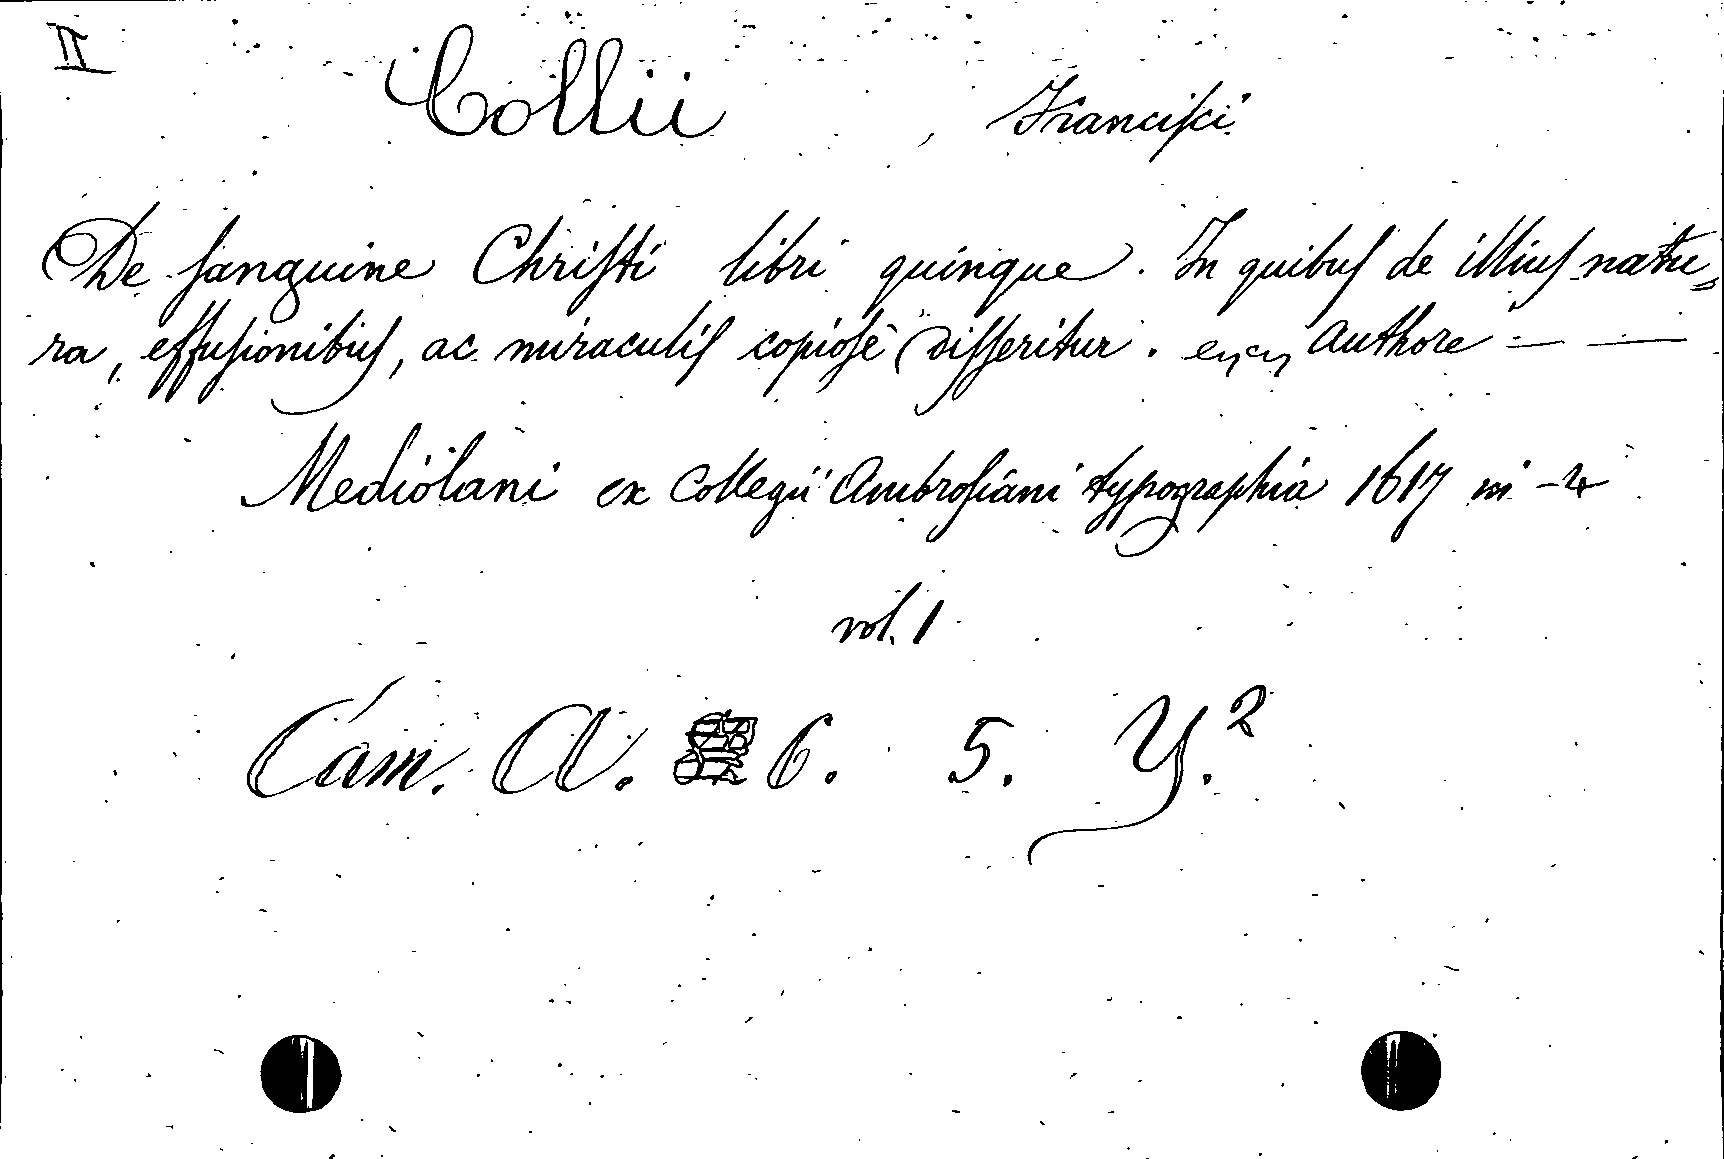 II
Collii , Franciſci
De ſanguine Chriſti libri quinque. In quibuſ de illiuſ natu=
ra, effuſionibuſ, ac miraculiſ copioſè diſſeritur. Authore — —
Mediolani ex Collegii Ambroſiani typographia 1617 in-4
vol. 1
Cam. A. 6. 5. Y.²